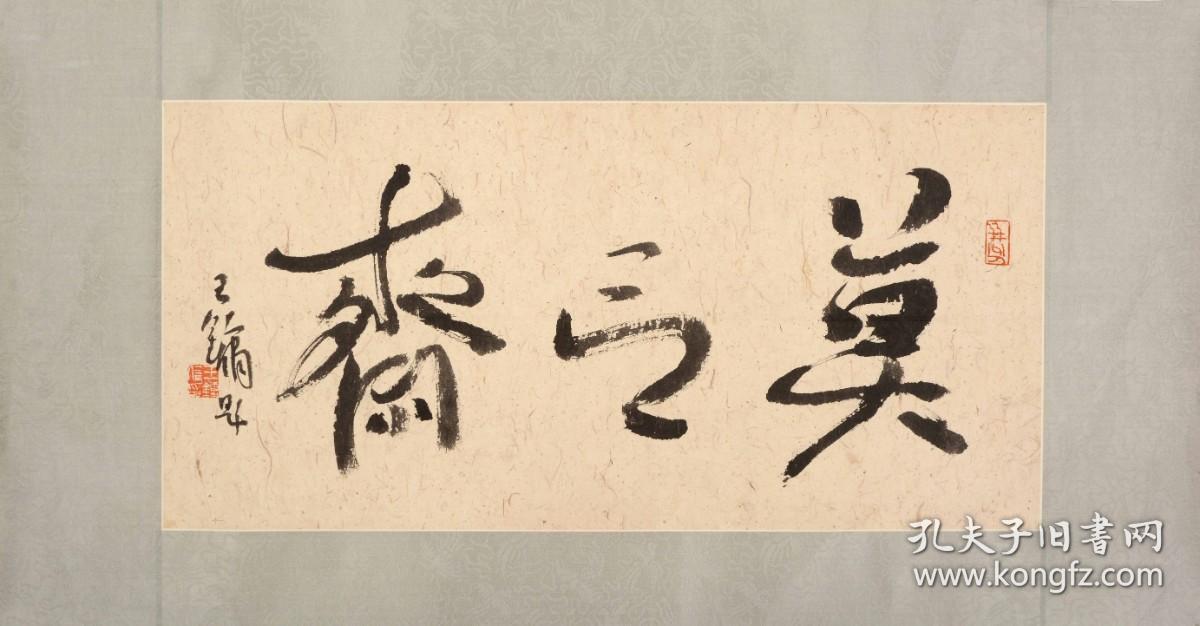 莫言斋
王镛题
孔夫子旧書网
www.kongfz.com